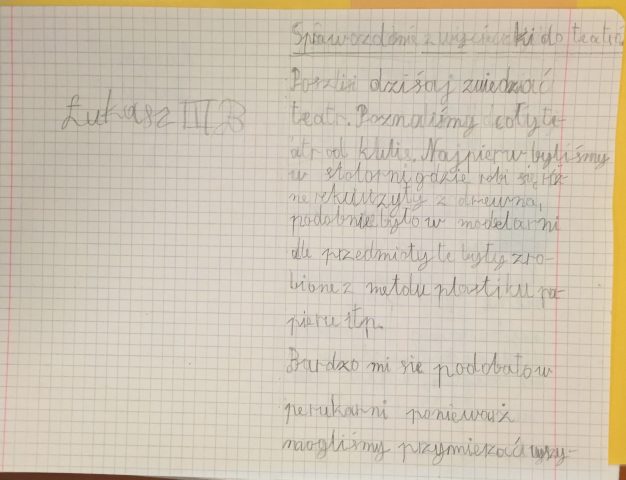 Łukasz III B
Sprawozdanie z wycieczki do teatru
Poszliśmy dzisiaj zwiedzać
teatr. Poznaliśmy cały te-
atr od kulis. Najpierw byliśmy
w stolarni, gdzie robi się róż
ne rekwizyty z drewna,
podobnie było w modelarni
ale przedmioty te były zro-
bione z metalu plastiku pa-
pieru itp.
Bardzo mi się podobało w
perukarni ponieważ
mogliśmy przymierzać